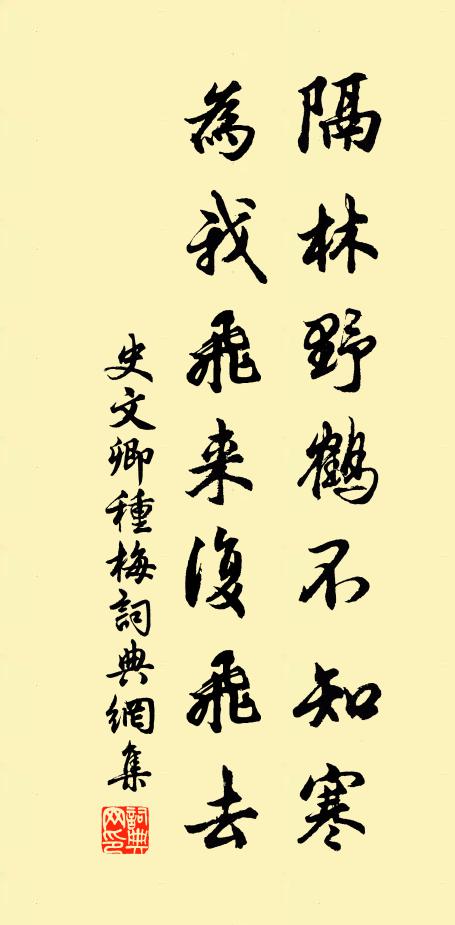 隔林野鶴不知寒
為我飛来復飛去
史文卿種梅詞典網集
詞典
网印